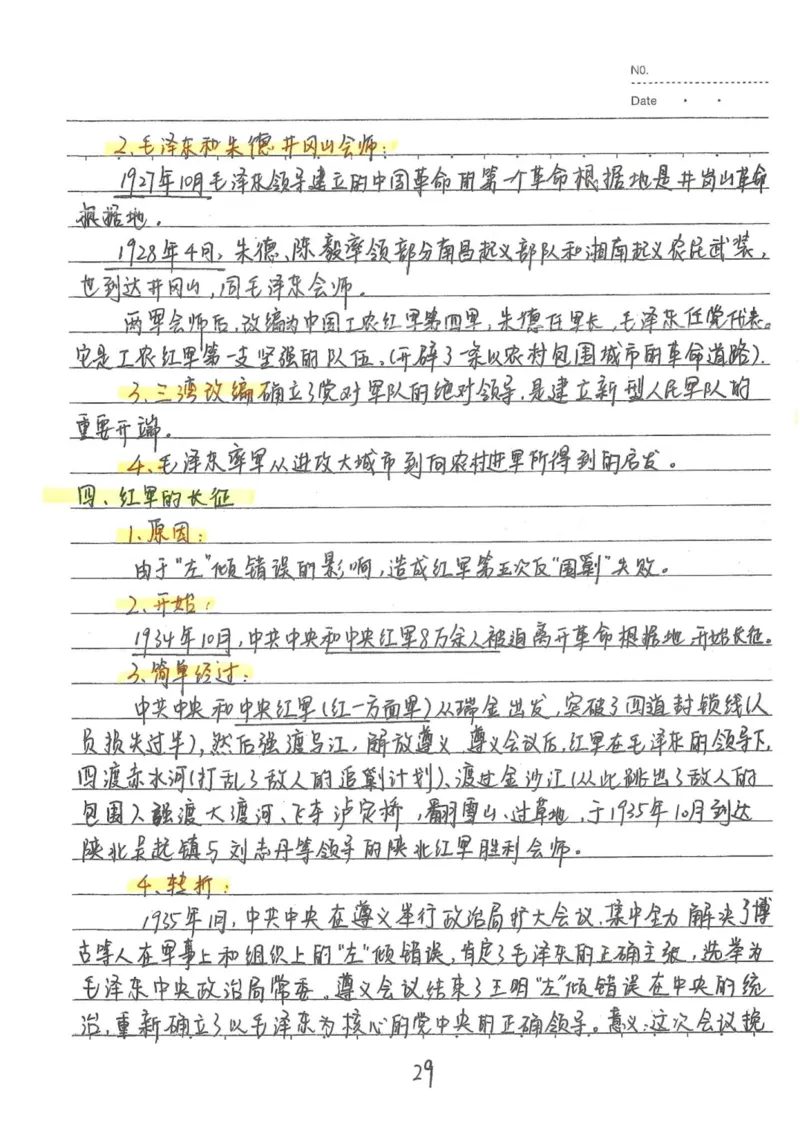 NO.
Date
2、毛泽东和朱德井冈山会师：
1927年10月毛泽东领导建立的中国革命的第一个革命根据地是井岗山革命
根据地。
1928年4月，朱德、陈毅率领部分南昌起义部队和湘南起义农民武装，
也到达井冈山，同毛泽东会师。
两军会师后，改编为中国工农红军第四军，朱德任军长，毛泽东任党代表。
它是工农红军第一支坚强的队伍。（开辟了一条以农村包围城市的革命道路）.
3、三湾改编确立了党对军队的绝对领导，是建立新型人民军队的
重要开端。
4、毛泽东率军从进攻大城市到向农村进军所得到的启发。
四、红军的长征
1、原因：
由于“左”倾错误的影响，造成红军第五次反“围剿”失败。
2、开始：
1934年10月，中共中央和中央红军8万余人被迫离开革命根据地，开始长征。
3、简单经过：
中共中央和中央红军（红一方面军）从瑞金出发，突破了四道封锁线（人
员损失过半），然后强渡乌江，解放遵义，遵义会议后，红军在毛泽东的领导下，
四渡赤水河（打乱了敌人的追剿计划）、渡过金沙江（从此跳出了敌人的
包围）、强渡大渡河、飞夺泸定桥，翻雪山、过草地，于1935年10月到达
陕北吴起镇与刘志丹等领导的陕北红军胜利会师。
4、转折：
1935年1月，中共中央在遵义举行政治局扩大会议，集中全力解决了博
古等人在军事上和组织上的“左”倾错误，肯定了毛泽东的正确主张，选举为
毛泽东中央政治局常委。遵义会议结束了王明“左”倾错误在中央的统
治，重新确立了以毛泽东为核心的党中央的正确领导。意义：这次会议挽
29